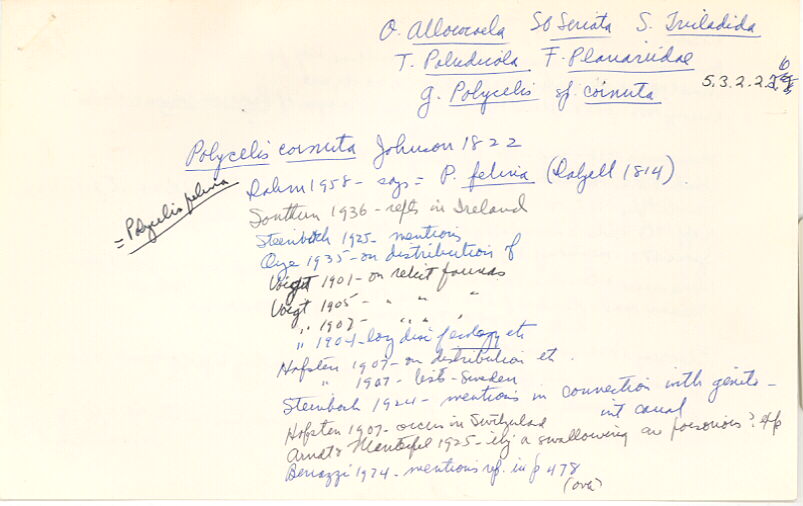 O. Allococoela SO Seriata S. Tricladida
T. Paludicola F. Planariidae
g. Polycelis sp. cornuta
5.3.2.2.
Polycelis cornuta Johnson 1822
= Polycelis felina
Dahm 1958 - says = P. felina (Dalyell 1814)
Southern 1936 - repts in Ireland
Steinböck 1925 - mentions
Oye 1935 - on distribution of
Voigt 1901 - on relict faunas
Voigt 1905 - " " "
" 1907 - " " "
" 1904 - ecology etc
Hofsten 1907 - on distribution etc.
" 1907 - lists - Sweden
Steinböck 1924 - mentions in connection with genito -
int canal
Hofsten 1907 - occurs in Switzerland
Arndt & Manteufel 1925 - if a swallowing are poisonous?
Benazzi 1974 - mentions ref. in p 478
(over)